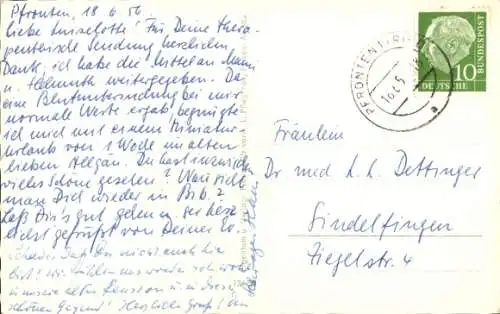 Pfronten, 18.6.56.
Liebe Luiselotte! Für Deine thera-
peutische Sendung herzlichen
Dank, ich habe die Mittel an Mann
u. Helmuth weitergegeben. Da
eine Blutuntersuchung bei mir
normale Werte ergab, begnügte
ich mich mit einem Miniatur-
urlaub von 1 Woche im alten
lieben Allgäu. Du hast inzwischen
vieles Schöne gesehen? Wann sieht
man Dich wieder in Bib.?
Laß Dir's gut gehen u. sei herz-
lichst gegrüßt von Deiner
Schade, daß Du nicht auch hier
bist! Wir fühlen uns wieder sehr wohl
in unserer alten Pension u. in dieser
schönen Gegend! Herzliche Grüße!
PFRONTEN
a
10
DEUTSCHE
BUNDESPOST
Fräulein
Dr med L. L. Dettinger
Sindelfingen
Ziegelstr. 4